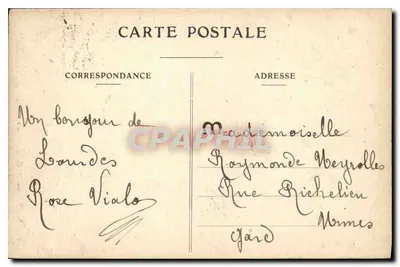 CARTE POSTALE
CORRESPONDANCE
ADRESSE
Un bonjour de
Lourdes
Rose Viala
Mademoiselle
Raymonde Meyrolles
Rue Richelieu
Nimes
Gard
CPAPHIL.COM